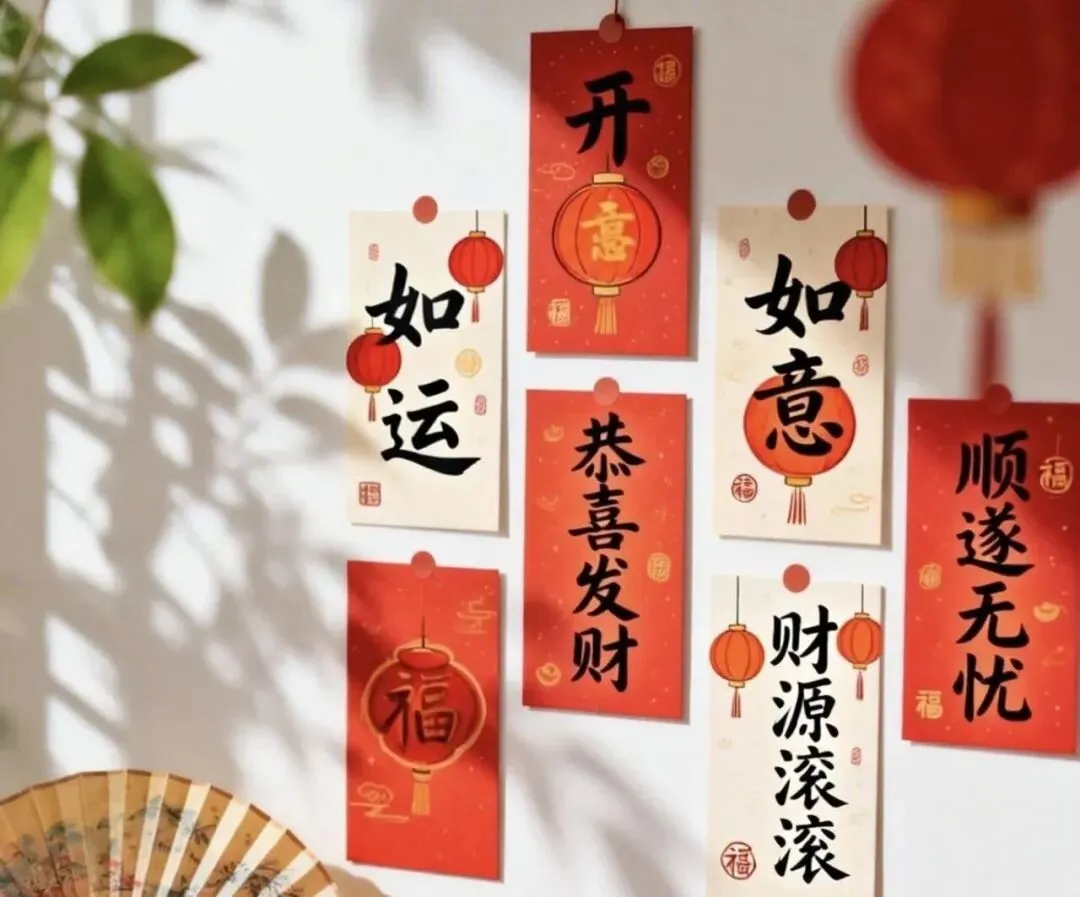 开
意
如
运
如
意
恭
喜
发
财
顺
遂
无
忧
福
福
财
源
滚
滚
福
福
福
福